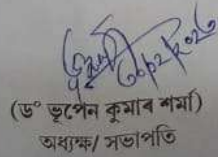 (ড° ভূপেন কুমাৰ শৰ্মা)
অধ্যক্ষ/ সভাপতি